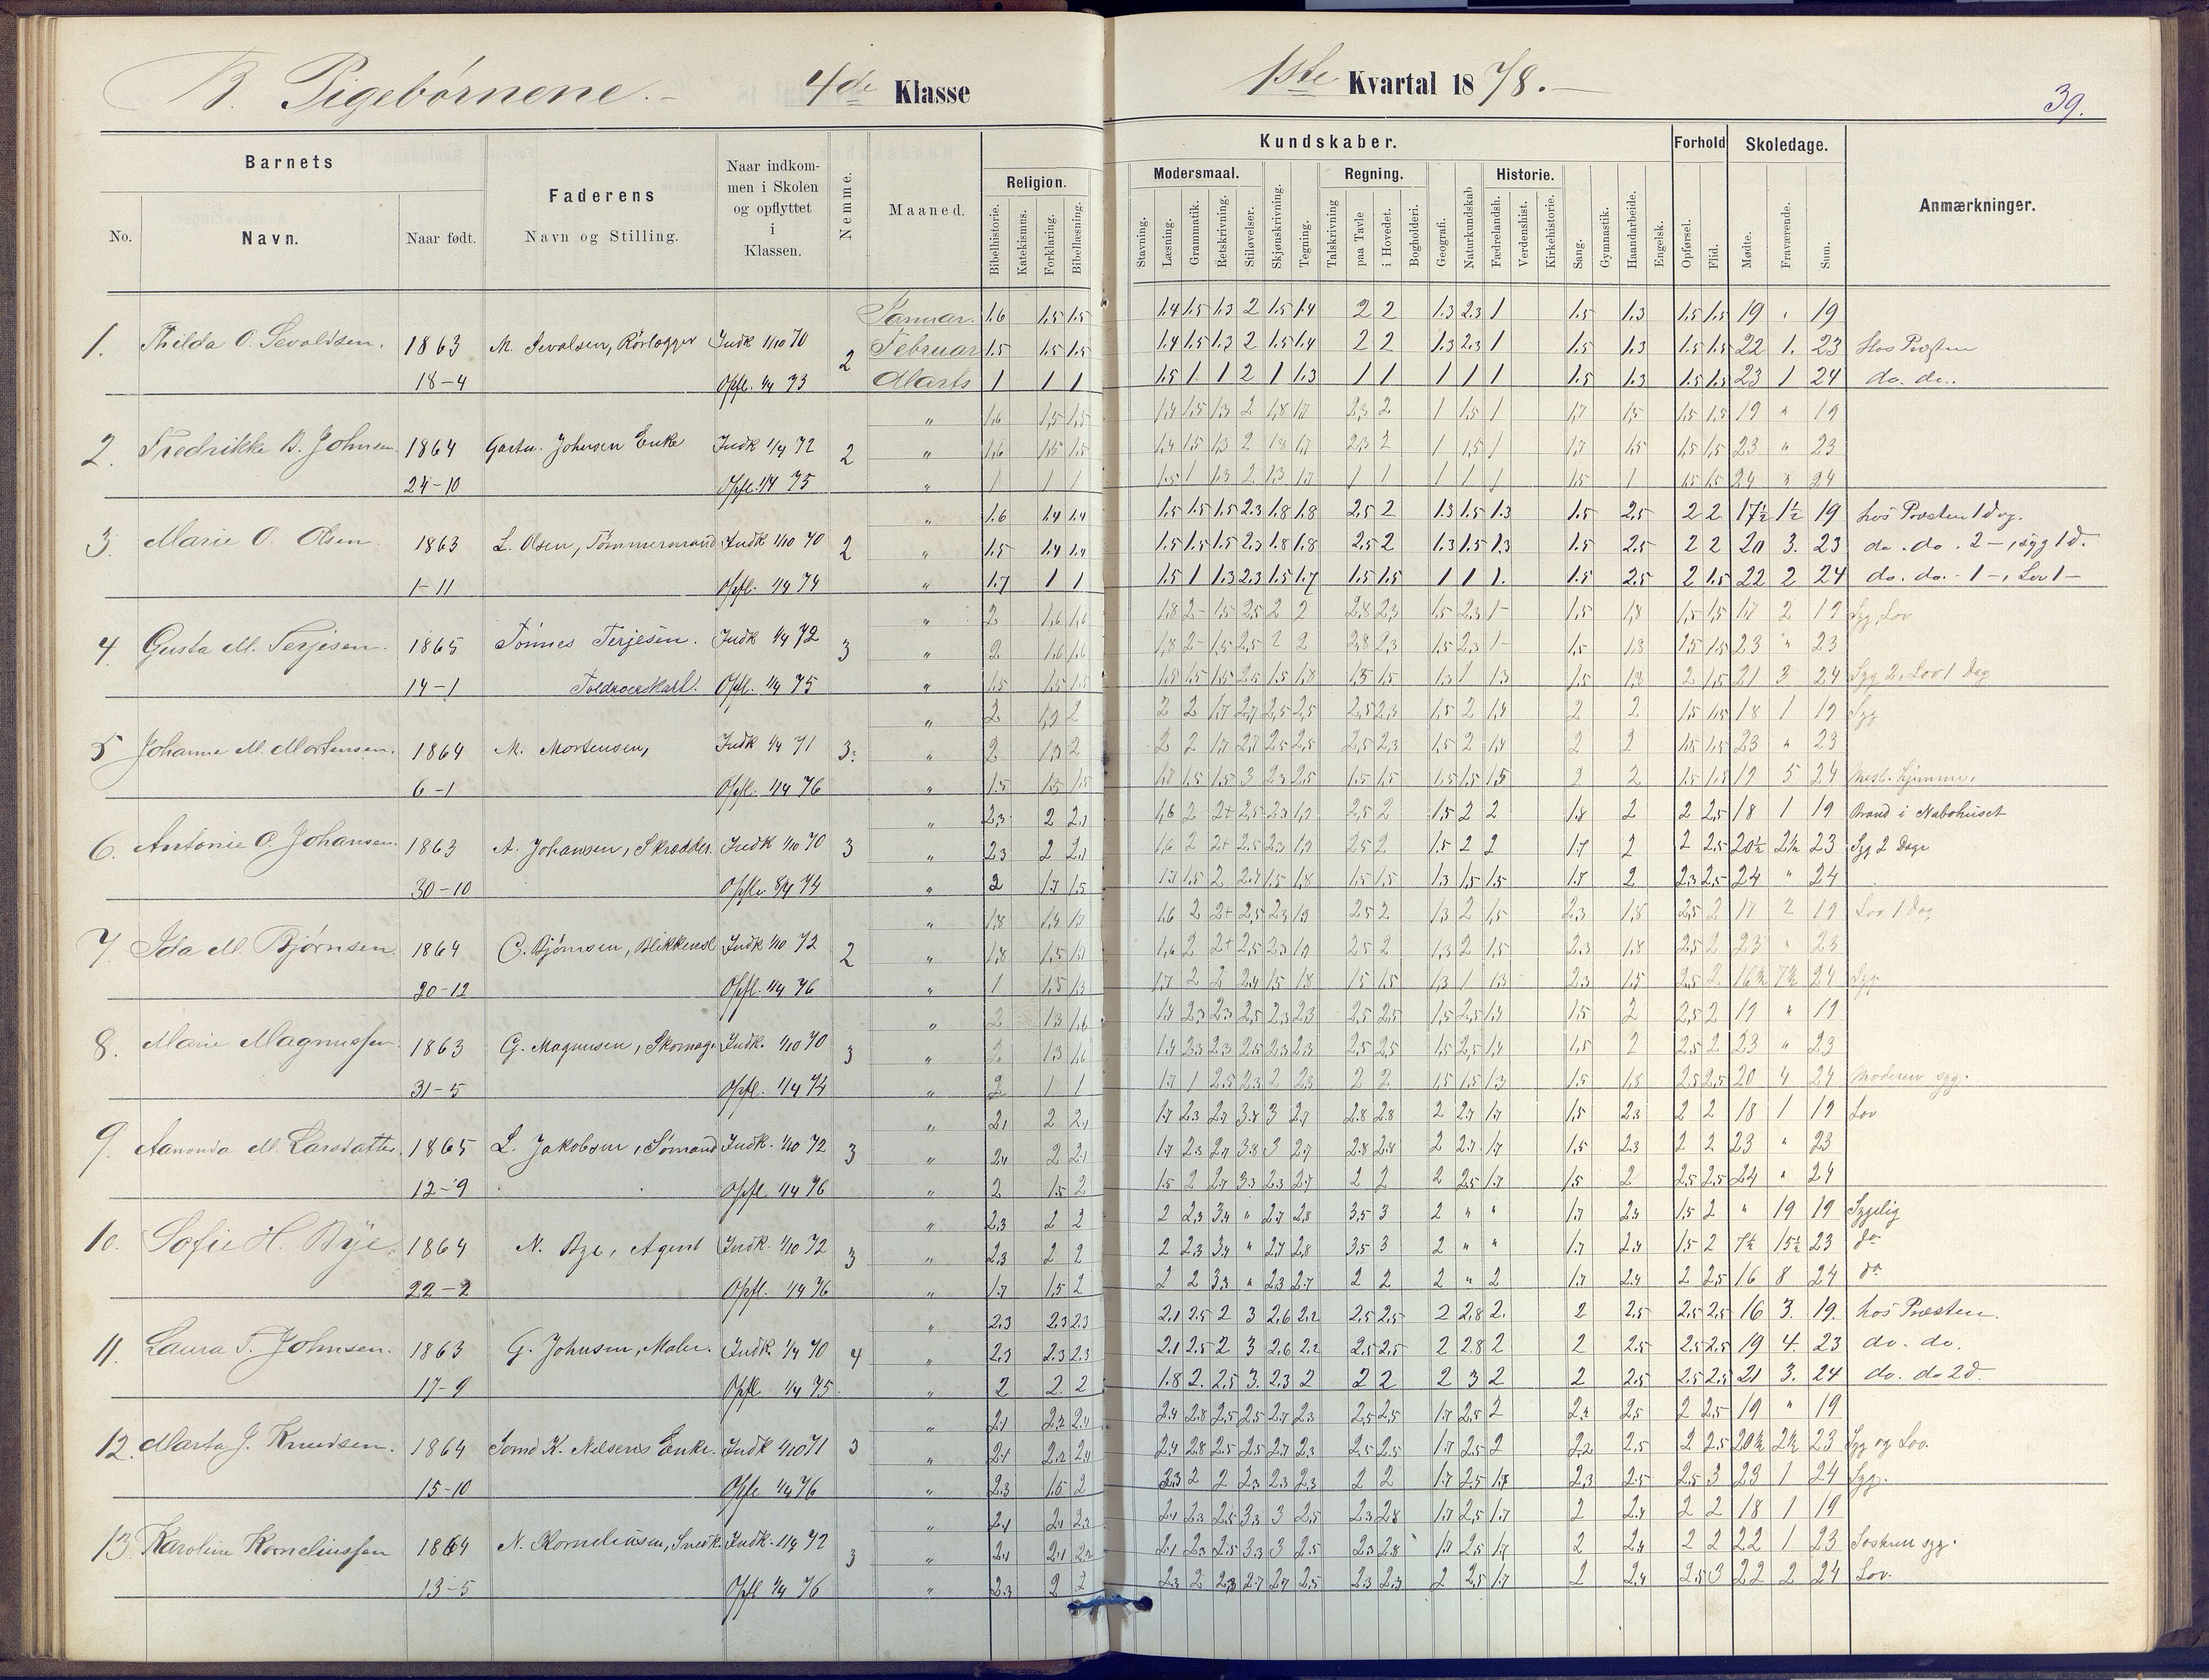 B. Pigebörnene.- 4de Klasse
1ste Kvartal 1878.-
39.
Barnets
Faderens
Naar indkommen i Skolen og opflyttet i Klassen.
Nemme.
Maaned.
Religion.
Kundskaber.
Modersmaal.
Skjønskrivning.
Tegning.
Regning.
Geografi.
Naturkundskab
Historie.
Sang.
Gymnastik.
Haandarbeide.
Engelsk.
Forhold
Skoledage.
Anmærkninger.
No.
Navn.
Naar født.
Navn og Stilling.
Bibelhistorie.
Katekismus.
Forklaring.
Bibellæsning.
Stavning.
Læsning.
Grammatik.
Retskrivning.
Stiløvelser.
Talskrivning
paa Tavle
i Hovedet.
Bogholderi.
Fædrelandsh.
Verdenshist.
Kirkehistorie.
Opførsel.
Flid.
Mødte.
Fraværende.
Sum.
Januar. 1.6 1.5 1.5 1.4 1.5 1.3 2 1.5 1.4 2 2 1.3 2.3 1 1.5 1.3 1.5 1.5 19 " 19
1. Thilda O. Sevaldsen. 1863 M. Sevalsen, Rörlægger Indk 1/10 70 2 Februar 1.5 1.5 1.5 1.4 1.5 1.3 2 1.5 1.4 2 2 1.3 2.3 1 1.5 1.3 1.5 1.5 22 1. 23 Hos Præsten
18-4 Opfl. 1/4 73 Marts 1 1 1 1.5 1 1 2 1 1.3 1 1 1 1 1 1.5 1.3 1.5 1.5 23 1 24 do. do.
" 1.6 1.5 1.5 1.4 1.5 1.3 2 1.8 1.7 2.3 2 1 1.5 1 1.7 1.5 1.5 1.5 19 " 19
2. Fredrikke B. Johnsen 1864 Gartn. Johnsen Enke Indk 1/4 72 2 " 1.6 1.5 1.5 1.4 1.5 1.3 2 1.8 1.7 2.3 2 1 1.5 1 1.7 1.5 1.5 1.5 23 " 23
24-10 Opfl. 1/4 75 " 1 1 1 1.5 1 1.3 2 1.3 1.7 1 1 1 1 1 1.5 1 1.5 1.5 24 " 24
" 1.6 1.4 1.4 1.5 1.5 1.5 2.3 1.8 1.8 2.5 2 1.3 1.5 1.3 1.5 2.5 2 2 17½ 1½ 19 hos Præsten 1 dag.
3. Marie O. Olsen 1863 L. Olsen, Tömmermand Indk 1/10 70 2 " 1.5 1.4 1.4 1.5 1.5 1.5 2.3 1.8 1.8 2.5 2 1.3 1.5 1.3 1.5 2.5 2 2 20 3. 23 do. do. 2-, syg 1 d.
1-11 Opfl. 1/4 74 " 1.7 1 1 1.5 1 1.3 2.3 1.5 1.7 1.5 1.5 1 1 1. 1.5 2.5 2 1.5 22 2 24 do. do. - 1-, Lov 1-
" 2 1.6 1.6 1.8 2- 1.5 2.5 2 2 2.8 2.3 1.5 2.3 1- 1.5 1.8 1.5 1.5 17 2 19 Syg, Lov
4. Gusta M. Terjesen. 1865 Tönnes Terjesen. Indk 1/4 72 3 " 2 1.6 1.6 1.8 2- 1.5 2.5 2 2 2.8 2.3 1.5 2.3 1- 1.5 1.8 1.5 1.5 23 " 23
14-1 Toldroerskarl. Opfl. 1/4 75 " 1.5 1.5 1.5 1.5 1.5 1.5 2.5 1.5 1.8 1.5 1.5 1.3 1 1.3 1.5 1.8 2 1.5 21 3 24 Syg 2, Lov 1 Dag
" 2 1.9 2 2 2 1.7 2.7 2.5 2.5 2.5 2.3 1.5 2 1.4 2 2 1.5 1.5 18 1 19 Syg
5 Johanne M. Mortensen. 1864 M. Mortensen, Indk 1/4 71 3. " 2 1.9 2 2 2 1.7 2.7 2.5 2.5 2.5 2.3 1.5 2 1.4 2 2 1.5 1.5 23 " 23
6-1 Opfl. 1/4 76 " 1.5 1.5 1.5 1.7 1.5 1.5 3 2.3 2.5 1.5 1.5 1.5 1.5 1.5 2 2 1.5 1.5 19 5 24 hjemme.
" 2.3 2 2.1 1.6 2 2+ 2.5 2.3 1.9 2.5 2 1.5 2 2 1.8 2 2 2.5 18 1 19 Brand i Nabohuset
6. Antonie O. Johansen. 1863 A. Johansen, Skrædder. Indk 1/10 70 3 " 2.3 2 2.1 1.6 2 2+ 2.5 2.3 1.9 2.5 2 1.5 2 2 1.7 2 2 2.5 20½ 2½ 23 Syg 2 Dage
30-10 Opfl. 8/4 74 " 2 1.7 1.5 1.7 1.5 2 2.7 1.5 1.8 1.5 1.5 1.3 1.5 1.5 1.7 2 2.3 2.5 24 " 24
" 1.8 1.4 1.7 1.6 2 2+ 2.5 2.3 1.9 2.5 2 1.3 2 1.5 2.3 1.8 2.5 2 17 2 19 Lov 1 Dag
7. Ida M. Bjørnsen. 1864 C. Bjørnsen, Blikkensl Indk 1/10 72 2 " 1.8 1.5 1.7 1.6 2 2+ 2.5 2.3 1.9 2.5 2 1.3 2 1.5 2.3 1.8 2.5 2 23 " 23
20-12 Opfl. 1/4 76 " 1 1.5 1.3 1.7 2 2 2.4 1.5 1.8 1.5 1.5 1.3 1 1.3 2.3 1.5 2.5 2 16½ 7½ 24 Syg
" 2 1.3 1.6 1.4 2.3 2.3 2.5 2.3 2.3 2.5 2.5 1.5 2.5 1.4 1.5 2 2.5 2 19 " 19
8. Marie Magnussen. 1863 G. Magnusen, Skomag. Indk. 1/10 70 3 " 2 1.3 1.6 1.4 2.3 2.3 2.5 2.3 2.3 2.5 2.5 1.5 2.5 1.4 1.5 2 2.5 2 23 " 23
31-5 Opfl. 1/4 74 " 2 1 1 1.7 1 2.5 2.3 2 2.3 2 2 1.5 1.5 1.3 1.5 1.8 2.5 2.5 20 4 24 Moderen syg.
" 2.1 2 2.1 1.7 2.3 2.7 3.7 3 2.7 2.8 2.8 2 2.7 1.7 1.5 2.3 2 2 18 1 19 Lov
9. Aanonda M. Larsdatter. 1865 L. Jakobsen, Sömand Indk. 1/10 72 3 " 2.1 2 2.1 1.7 2.3 2.7 3.8 3 2.7 2.8 2.8 2 2.7 1.7 1.5 2.3 2 2 23 " 23
12-9 Opfl. 1/4 76 " 2 1.5 2 1.5 2 2.7 3.3 2.3 2.7 2 2 2 2.5 1.7 1.5 2 2.5 2.5 24 " 24
" 2.3 2 2 2 2.3 3.4 " 2.7 2.8 3.5 3 2 " " 1.7 2.4 1.5 2 " 19 19 Sygelig
10. Sofie H. Bye. 1864 N. Bye, Agent Indk. 1/10 72 3 " 2.3 2 2 2 2.3 3.4 " 2.7 2.8 3.5 3 2 " " 1.7 2.4 1.5 2 7½ 15½ 23 do
22-2 Opfl. 1/4 76 " 1.7 1.5 2 2 2 3.3 " 2.3 2.7 2 2 2 " 2 1.7 2.4 2 2.5 16 8 24 do
" 2.3 2.3 2.3 2.1 2.5 2 3 2.6 2.2 2.5 2.5 2 2.8 2. 2 2.5 2.5 2.5 16 3. 19. hos Præsten.
11. Laura T. Johnsen. 1863 G. Johnsen, Maler. Indk. 1/4 70 4 " 2.3 2.3 2.3 2.1 2.5 2 3 2.6 2.2 2.5 2.5 2 2.8 2 2 2.5 2.5 2.5 19 4. 23 do. do.
17-9 Opfl 1/4 75. " 2 2. 2 1.8 2. 2.5 3. 2.3 2 2 2 2 3 2 2 2.5 2.5 2.5 21 3. 24 do. do 2 d.
" 2.1 2.2 2.1 2.4 2.8 2.5 2.5 2.7 2.3 2.5 2.5 1.7 2.5 2 2.2 2.5 2 2.5 19 " 19
12. Marta J. Knudsen. 1864 Sömd K. Nelsens Enke. Indk 1/10 71 3 " 2.1 2.2 2.1 2.4 2.8 2.5 2.5 2.7 2.3 2.5 2.5 1.7 2.5 2 2.2 2.5 2 2.5 20½ 2½ 23 Syg og Lov.
15-10 Opfl 1/4 76 " 2.3 1.5 2 2.3 2 2 2.3 2.3 2.3 2 2 1.7 2.5 1.7 2.3 2.5 2.5 3 23 1 24 Syg.
" 2.1 2.1 2.2 2.1 2.3 2.5 3.3 3 2.5 2.3 2.8 1.7 2.5 1.7 2 2.4 2 2 18 1 19
13. Karoline Korneliussen 1864 N. Korneliusen, Snedk. Indk. 1/4 72 3 " 2.1 2.1 2.2 2.1 2.3 2.5 3.3 3 2.5 2.3 2.8 1.7 2.5 1.7 2 2.4 2 2 22 1 23 Söskren syg.
13-5 Opfl 1/4 76 " 2.3 2 2 2.3 2 2.3 2.7 2.7 2.5 2.3 2.3 2 2.5 1.7 2 2.4 2.5 3 22 2 24 Lov.